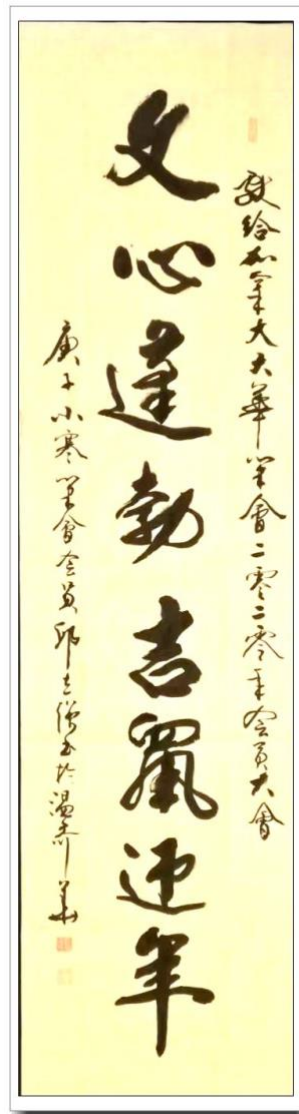 献给加拿大大華笔會二零二零年会员大會
文心蓬勃吉鼠迎年
庚子小寒笔會会员邱志强书於温哥華